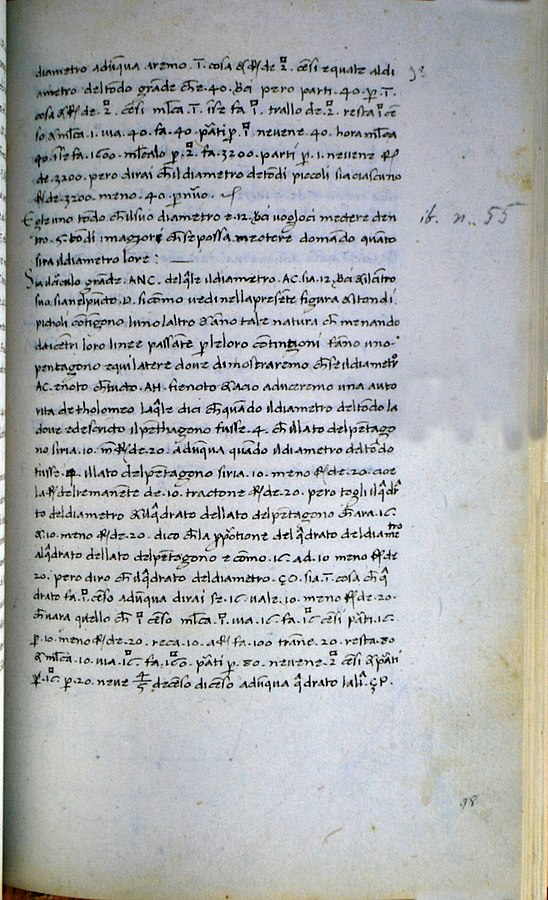 diametro adunqua aremo .1̅. cosa & R de .2. cẽsi equale al di
ametro del todo grãde ch'e .40. Bci pero parti .40. p .1̅.
cosa & R de .2. cẽsi mĩca .1̅. ĩse fa .1. trallo de .2. resta .1. cẽ
so & mĩca .1. via .40. fa .40. pãti p .1. nevene .40. hora mĩca
40. ĩse fa .1600. mĩcalo p .2. fa .3200. parti p .1. nevene R
de .3200. pero dirai ch il diametro de tõdi piccoli sia ciascuno
R de .3200. meno .40. p nũo.
Egle uno tõdo ch il suo diametro e .12. Bci vogloci mectere den
tro .5. tõdi i magiori ch se possa mectere domãdo quãto
sira il diametro loro :
Sia il circulo grãde .ANC. del q̃le il diametro .AC. sia .12. Bci & il cẽtro
suo sia nel puncto .D. sicõmo vedi nella presẽte figura & i tondi
picholi cõtigono l uno l altro & ãno tale natura ch menando
da i cẽtri loro linee passãte p le loro contingẽti fãno uno
pentagono equilatere dove dimostraremo ch se il diametro
AC. e noto ch tucto .AH. fie noto & a cio aduceremo una auto
rita de tholomeo la q̃le dici ch quãdo il diametro del tõdo la
dove e descricto il pẽthagono fusse .4. ch il lato del pẽtago
no siria .10. m̃ R de .20. adũqua quãdo il diametro del tõdo
fusse .4. il lato del pẽtagono siria .10. meno R de .20. cioe
la R del remanẽte de .10. tractone R de .20. pero togli il q̃dra
to del diametro & il q̃drato del lato del pẽtagono ch ara .16.
& .10. meno R de .20. dico ch la pportione del q̃drato del diametro
al q̃drato del lato del pẽtagono e cõmo .16. ad .10. meno R de
20. pero diro ch il q̃drato del diametro .ÇO. sia .1̅. cosa ch q̃
drato fa .1. cẽso adũqua dirai se .16. vale .10. meno R de .20.
ch vara quello ch .1. cẽso mĩca .1. via .16. fa .16. cẽsi pãti .16.
p .10. meno R de .20. reca .10. a R fa .100. trãne .20. resta .80
& mĩca .10. via .16. fa .160. pãti p .80. nevene .2. cẽsi & pãti
p .16. p .20. neve 4/5 de cẽso di cẽso adũqua q̃drato la lĩ .ÇP.
3ª
it. n. 55
98